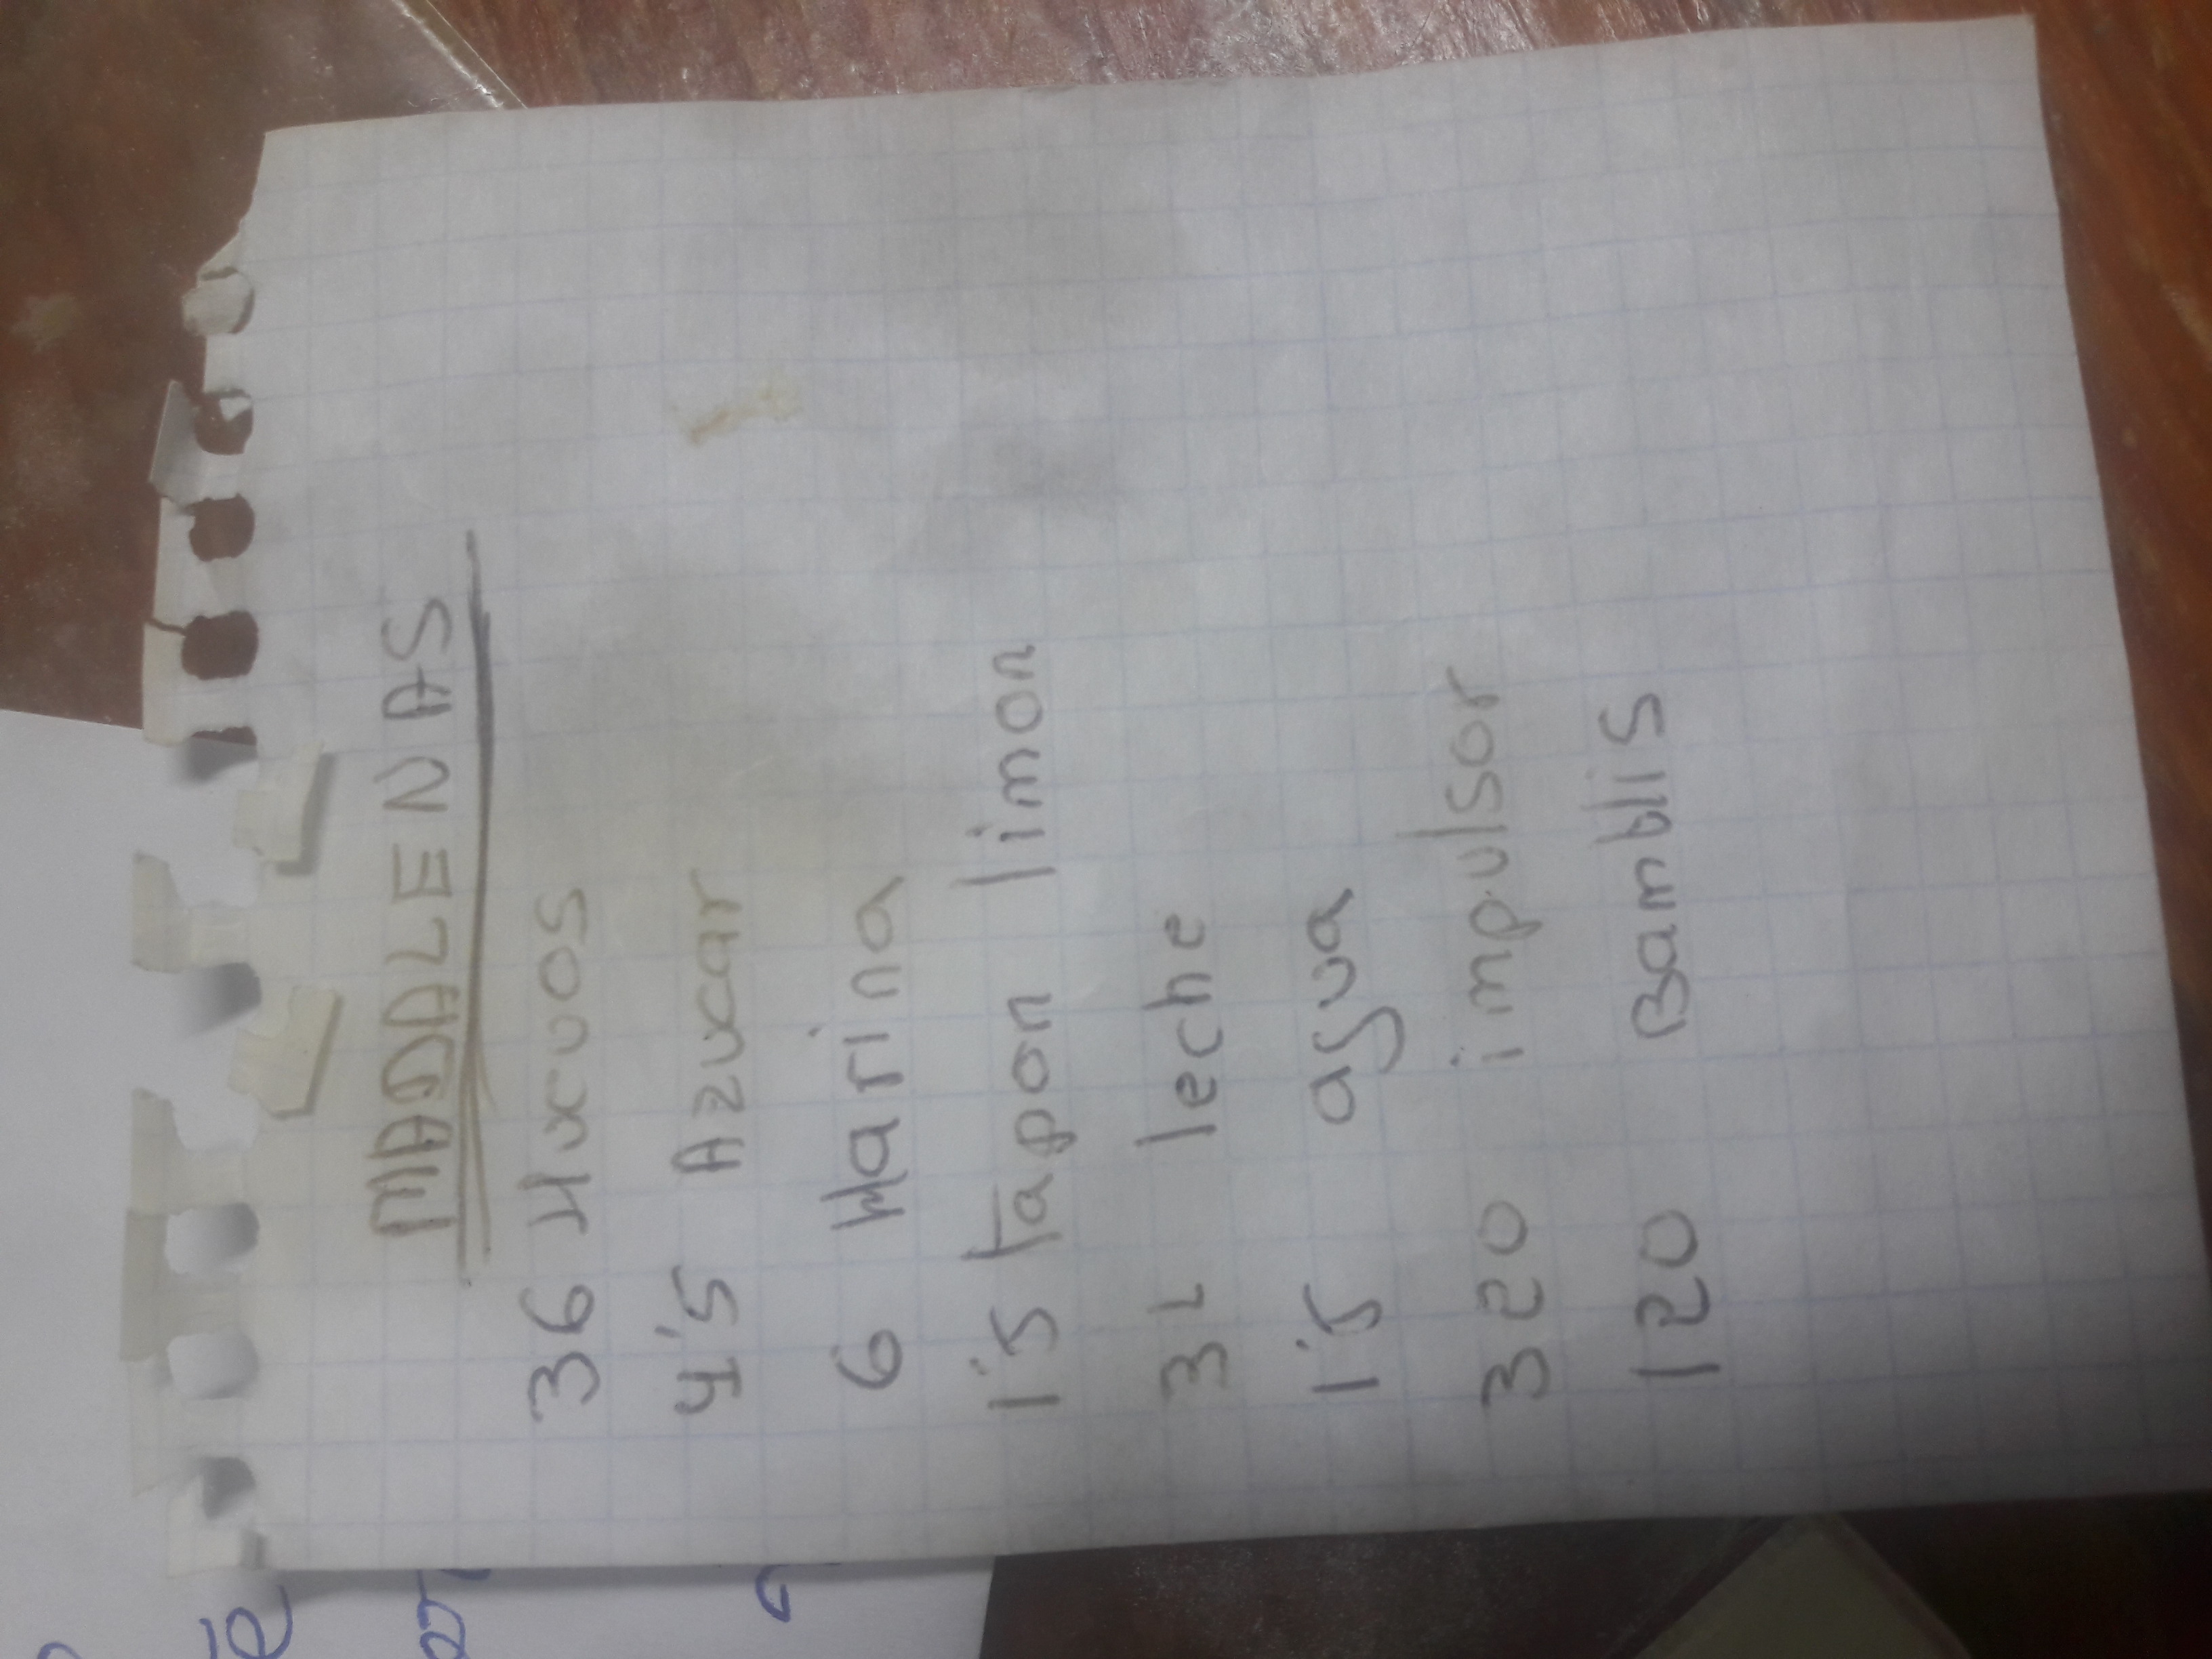 MADALENAS
36 Huevos
4'5 Azucar
6 Harina
1'5 Tapon limon
3L leche
1'5 agua
320 impulsor
120 Bamblis